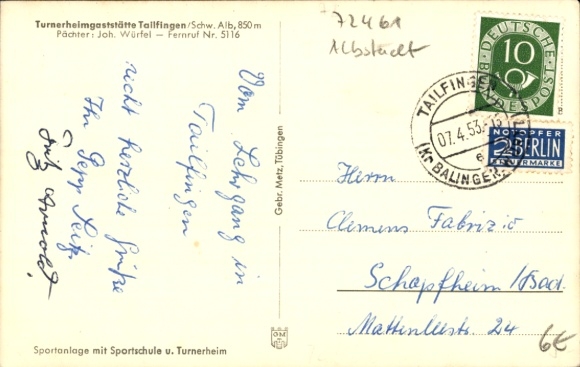 Turnerheimgaststätte Tailfingen/Schw. Alb, 850 m
Pächter: Joh. Würfel – Fernruf Nr. 5116
72461
Albstadt
DEUTSCHE
BUNDESPOST
10
TAILFINGEN
07.4.53
(Kr BALINGEN)
NOTOPFER
2 BERLIN
STEUERMARKE
Vom Lehrgang in
Tailfingen
recht herzliche Grüße
Ihr Sepp
Fritz Arnold.
Gebr. Metz, Tübingen
Herrn
Clemens Fabrizio
Schopfheim/Bad.
Mattenleestr. 24
6€
GM
Sportanlage mit Sportschule u. Turnerheim